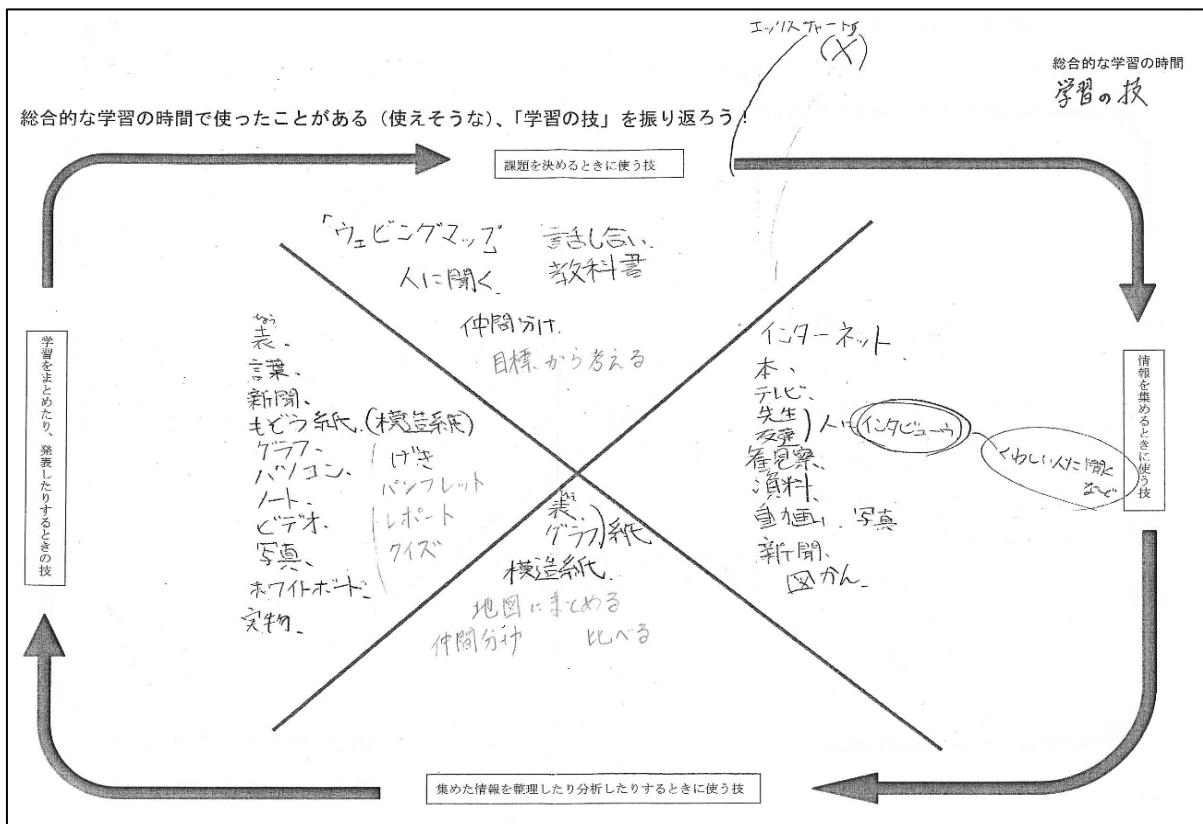 エックスチャート
(X)
総合的な学習の時間
学習の技
総合的な学習の時間で使ったことがある（使えそうな）、「学習の技」を振り返ろう！
課題を決めるときに使う技
「ウェビングマップ」 話し合い、
人に聞く、 教科書
仲間分け、
目標から考える
情報を集めるときに使う技
インターネット、
本、
テレビ、
先生
友達）人に インタビュー
くわしい人に聞く
など
観察、
資料、
動画、写真
新聞、
図かん、
集めた情報を整理したり分析したりするときに使う技
ひょう
表、
グラフ）紙
模造紙、
地図にまとめる
仲間分け 比べる
学習をまとめたり、発表したりするときの技
ひょう
表、
言葉、
新聞、
もぞう紙、（模造紙）
グラフ、
パソコン、
ノート、
ビデオ、
写真、
ホワイトボード、
実物、
げき
パンフレット
レポート
クイズ